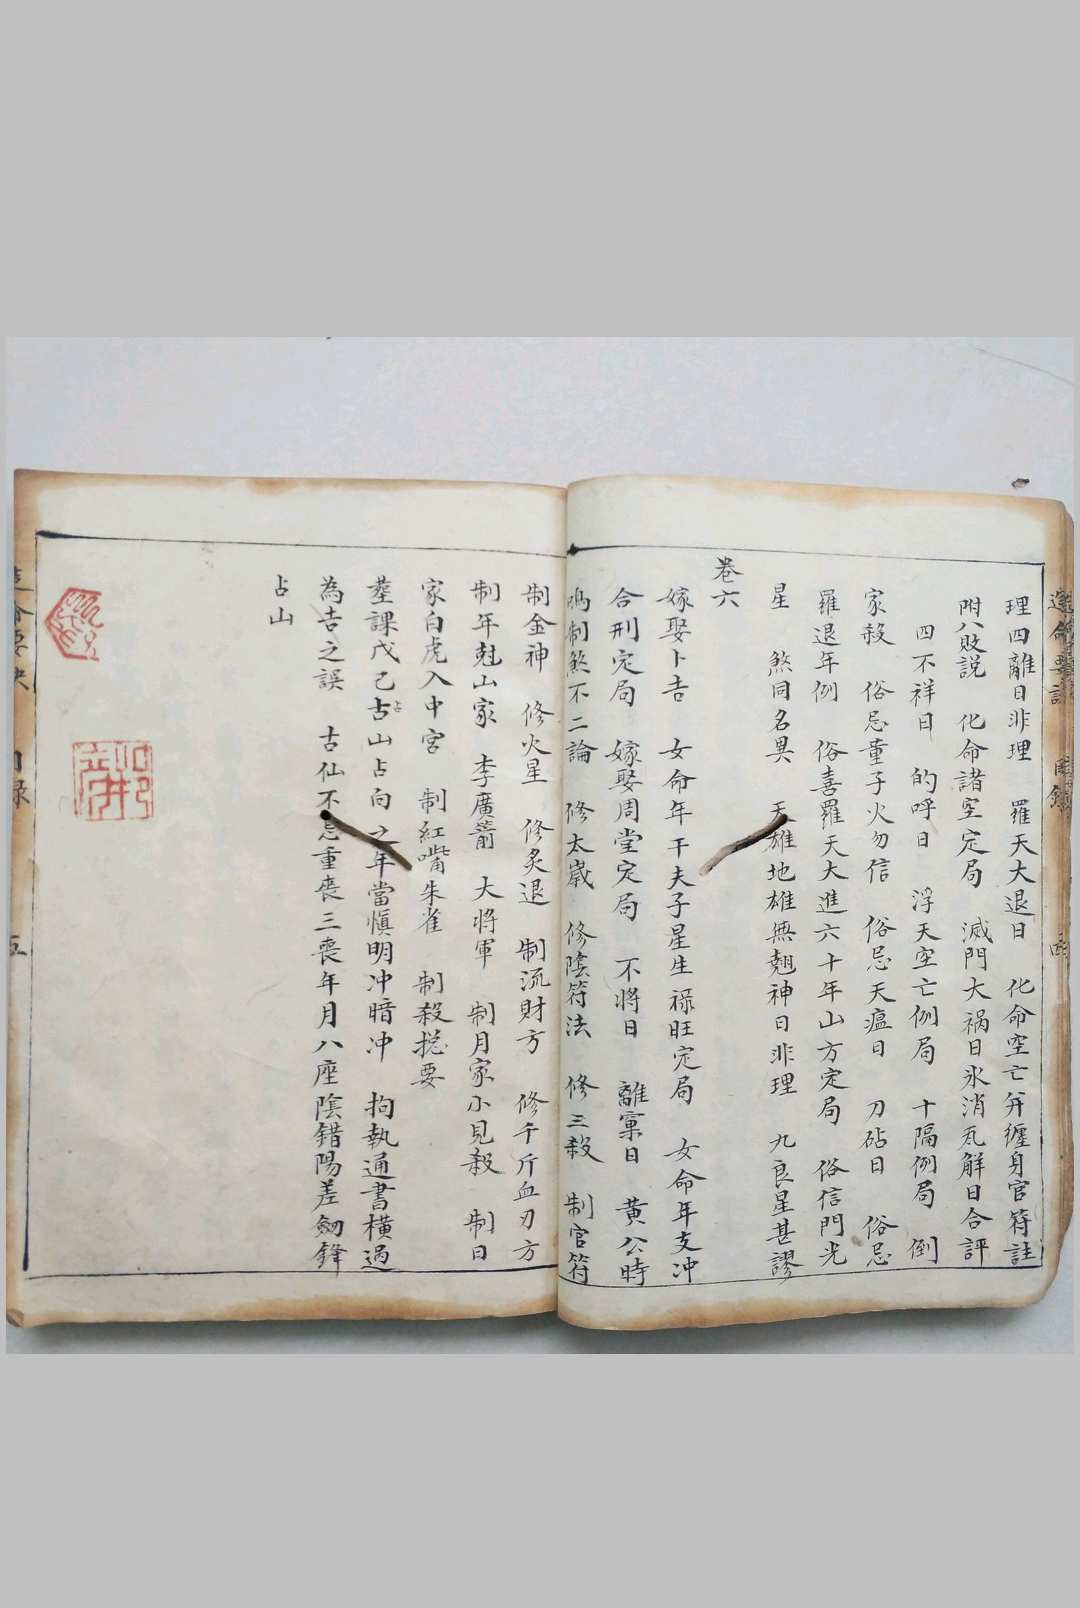 造命要訣 目錄 四
理四離日非理 羅天大退日 化命空亡并纏身官符註
附八敗説 化命諸空定局 滅門大禍日氷消瓦解日合評
四不祥日 的呼日 浮天空亡例局 十隔例局 倒
家殺 俗忌童子火勿信 俗忌天瘟日 刀砧日 俗忌
羅退年例 俗喜羅天大進六十年山方定局 俗信門光
星 煞同名異 天雄地雄無翹神日非理 九良星甚謬
卷六
嫁娶卜吉 女命年干夫子星生祿旺定局 女命年支冲
合刑定局 嫁娶周堂定局 不將日 離窠日 黃公時
鳴制煞不二論 修太歲 修陰符法 修三殺 制官符
制金神 修火星 修炙退 制流財方 修千斤血刃方
制年尅山家 李廣箭 大將軍 制月家小見殺 制日
家白虎入中宮 制紅嘴朱雀 制殺捴要
塟課戊己古占山占向之年當慎明冲暗冲 拘執通書橫過
為吉之誤 古仙不忌重喪三喪年月八座陰錯陽差劍鋒
占山
造命要訣 目錄 五